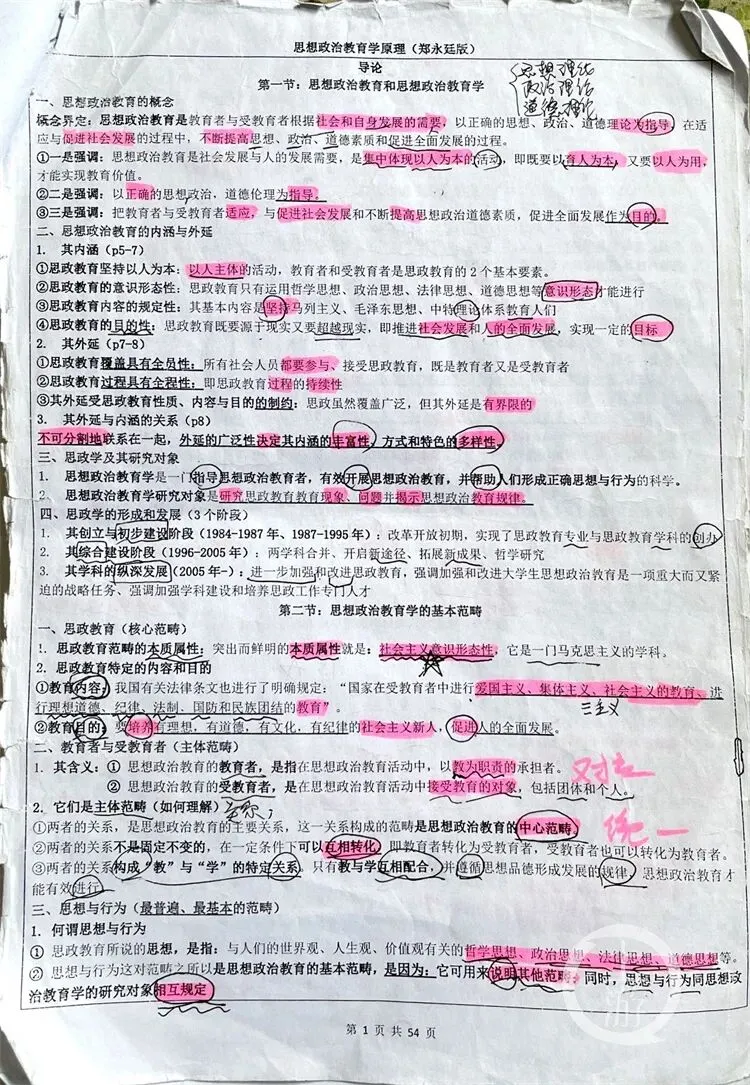 思想政治教育学原理（郑永廷版）
导论
第一节：思想政治教育和思想政治教育学
思想理论
政治理论
道德理论
一、思想政治教育的概念
概念界定：思想政治教育是教育者与受教育者根据社会和自身发展的需要，以正确的思想、政治、道德理论为指导，在适
应与促进社会发展的过程中，不断提高思想、政治、道德素质和促进全面发展的过程。
①一是强调：思想政治教育是社会发展与人的发展需要，是集中体现以人为本的活动，即既要以育人为本，又要以人为用，
才能实现教育价值。
②二是强调：以正确的思想政治，道德伦理为指导。
③三是强调：把教育者与受教育者适应，与促进社会发展和不断提高思想政治道德素质，促进全面发展作为目的。
二、思想政治教育的内涵与外延
1. 其内涵（p5-7）
①思政教育坚持以人为本：以人主体的活动，教育者和受教育者是思政教育的2个基本要素。
②思政教育的意识形态性：思政教育只有运用哲学思想、政治思想、法律思想、道德思想等意识形态才能进行
③思政教育内容的规定性：其基本内容是坚持马列主义、毛泽东思想、中特理论体系教育人们
④思政教育的目的性：思政教育既要源于现实又要超越现实，即推进社会发展和人的全面发展，实现一定的目标
2. 其外延（p7-8）
①思政教育覆盖具有全员性：所有社会人员都要参与、接受思政教育，既是教育者又是受教育者
②思政教育过程具有全程性：即思政教育过程的持续性
③其外延受思政教育性质、内容与目的的制约：思政虽然覆盖广泛，但其外延是有界限的
3. 其外延与内涵的关系（p8）
不可分割地联系在一起，外延的广泛性决定其内涵的丰富性，方式和特色的多样性。
三、思政学及其研究对象
1. 思想政治教育学是一门指导思想政治教育者，有效开展思想政治教育，并帮助人们形成正确思想与行为的科学。
2. 思想政治教育学研究对象是研究思政教育教育现象、问题并揭示思想政治教育规律。
四、思政学的形成和发展（3个阶段）
1. 其创立与初步建设阶段（1984-1987年、1987-1995年）：改革开放初期，实现了思政教育专业与思政教育学科的创办
2. 其综合建设阶段（1996-2005年）：两学科合并、开启新途径、拓展新成果、哲学研究
3. 其学科的纵深发展（2005年-）：进一步加强和改进思政教育，强调加强和改进大学生思想政治教育是一项重大而又紧
迫的战略任务、强调加强学科建设和培养思政工作专门人才
第二节：思想政治教育学的基本范畴
一、思政教育（核心范畴）
1. 思政教育范畴的本质属性：突出而鲜明的本质属性就是：社会主义意识形态性，它是一门马克思主义的学科。
2. 思政教育特定的内容和目的
①教育内容：我国有关法律条文也进行了明确规定：“国家在受教育者中进行爱国主义、集体主义、社会主义的教育，进
行理想道德、纪律、法制、国防和民族团结的教育”。
三主义
②教育目的：要培养有理想，有道德，有文化，有纪律的社会主义新人，促进人的全面发展。
二、教育者与受教育者（主体范畴）
1. 其含义：① 思想政治教育的教育者，是指在思想政治教育活动中，以教为职责的承担者。
② 思想政治教育的受教育者，是在思想政治教育活动中接受教育的对象，包括团体和个人。
对立
2. 它们是主体范畴（如何理解）
①两者的关系，是思想政治教育的主要关系，这一关系构成的范畴是思想政治教育的中心范畴。
统一
②两者的关系不是固定不变的，在一定条件下可以互相转化，即教育者转化为受教育者，受教育者也可以转化为教育者。
③两者的关系构成“教”与“学”的特定关系。只有教与学互相配合，并遵循思想品德形成发展的规律，思想政治教育才
能有效进行
三、思想与行为（最普遍、最基本的范畴）
1. 何谓思想与行为
① 思政教育所说的思想，是指：与人们的世界观、人生观、价值观有关的哲学思想、政治思想、法律思想、道德思想等。
② 思想与行为这对范畴之所以是思想政治教育的基本范畴，是因为：它可用来说明其他范畴；同时，思想与行为同思想政
治教育学的研究对象相互规定
第 1 页 共 54 页